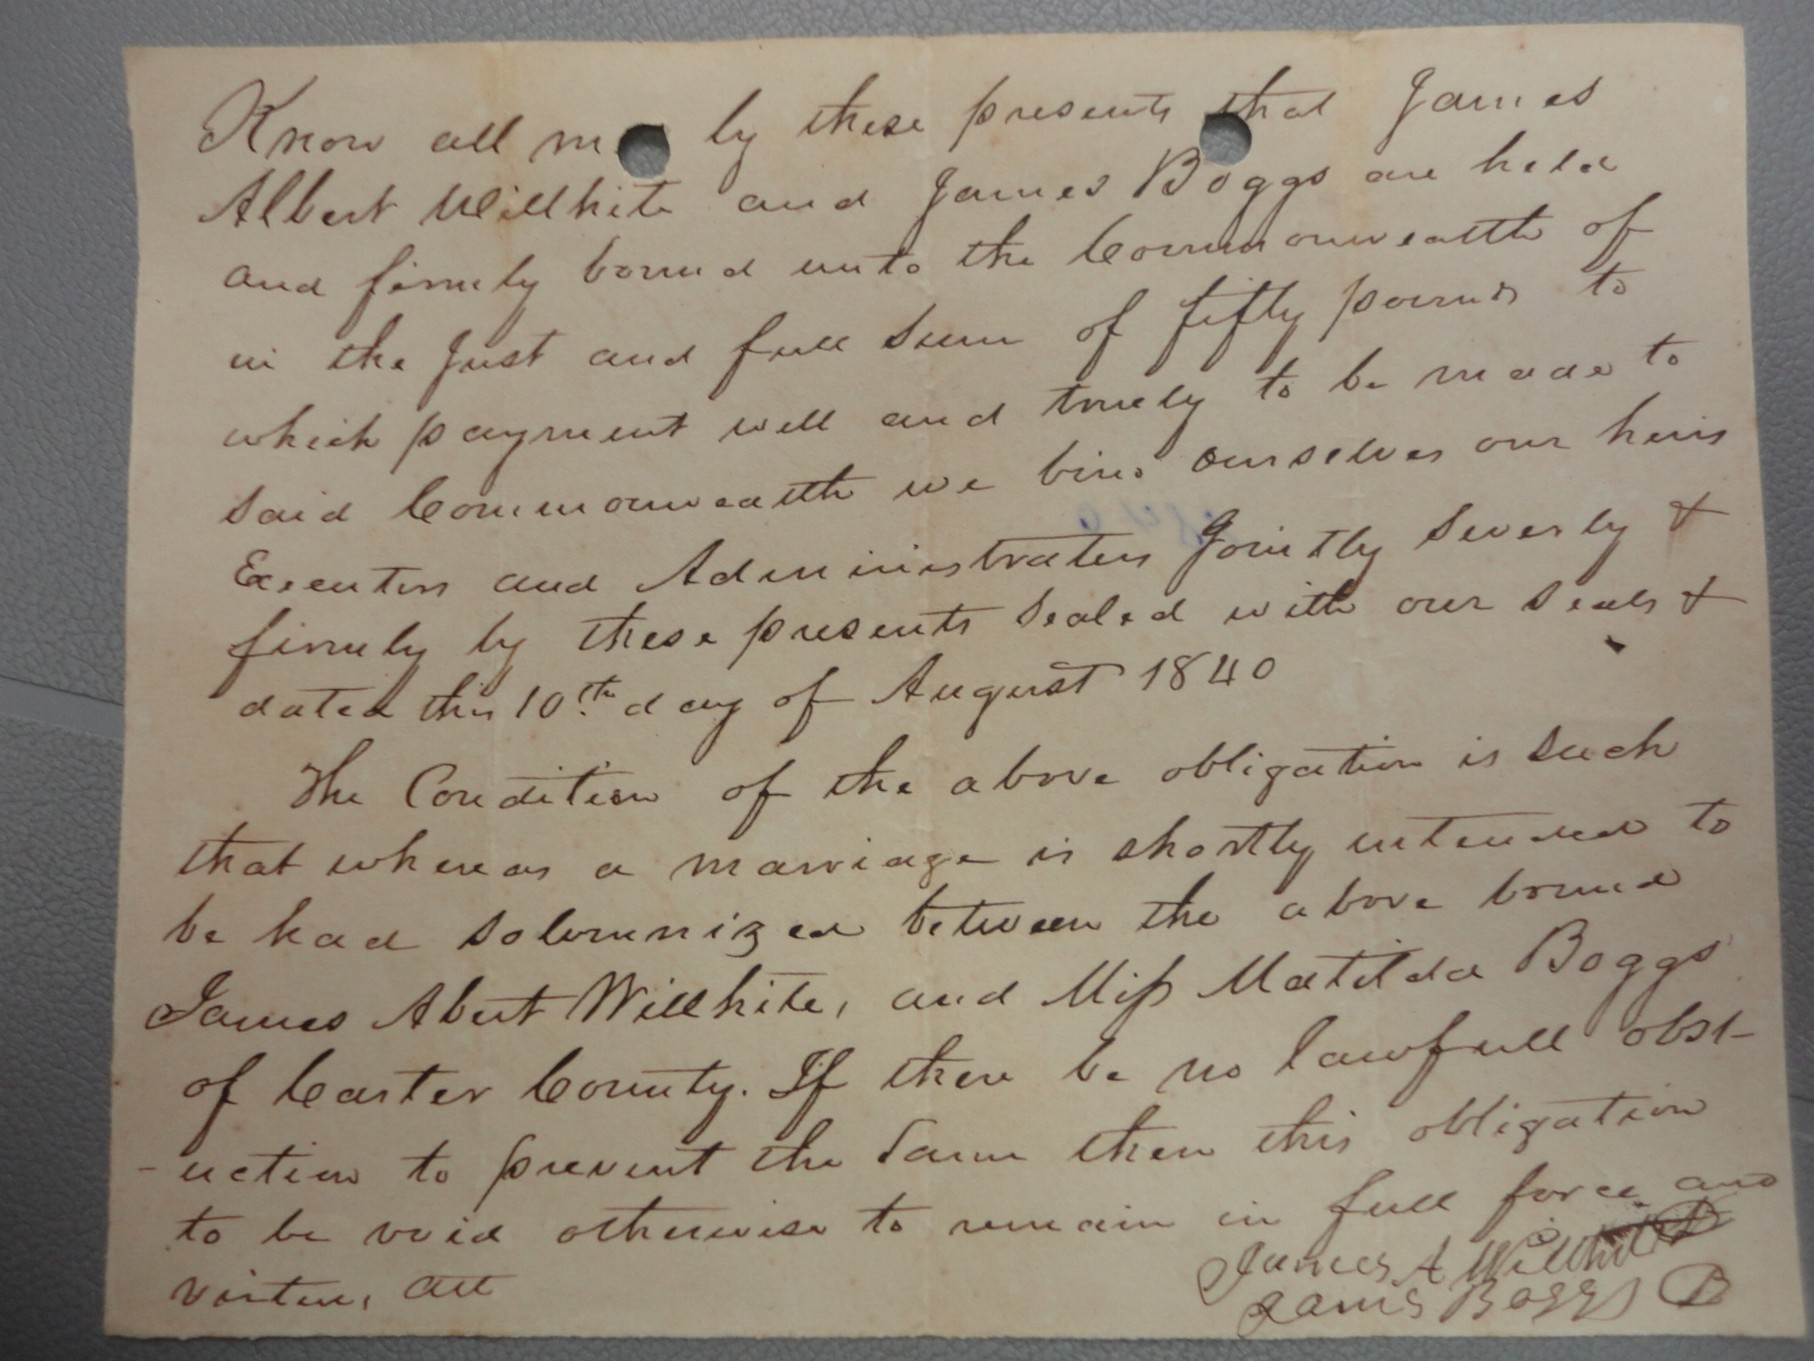 Know all m by these presents that James
Albert Willhite and James Boggs are held
and firmly bound unto the Commonwealth of
in the Just and full Sum of fifty pounds to
which payment well and truely to be made to
said Commonwealth we bind ourselves our heirs
Executors and Administrators Jointly Severly &
firmly by these presents Sealed with our Seals &
dated this 10th day of August 1840
The Condition of the above obligation is Such
that whereas a marriage is shortly intended to
be had Solemnized between the above bound
James Abert Willhite, and Miss Matilda Boggs
of Carter County. If there be no lawfull obst-
-uction to prevent the Same then this obligation
to be void otherwise to remain in full force and
virtue,
James A Willhite
James Boggs